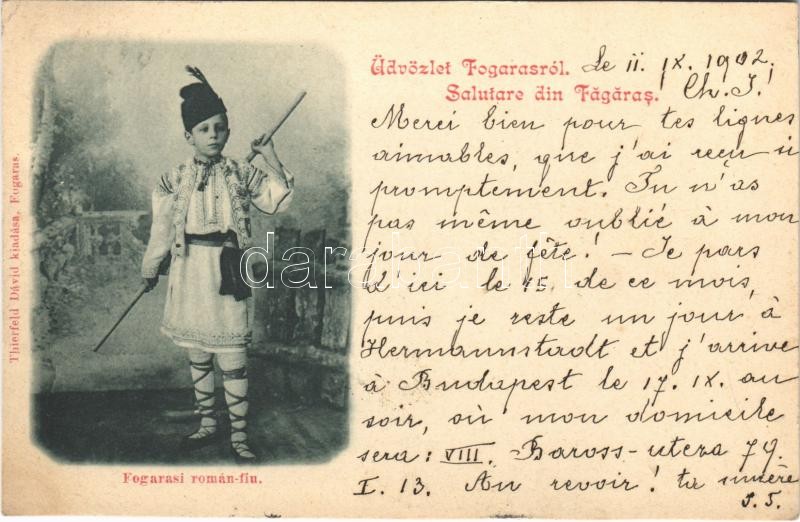 Üdvözlet Fogarasról. Le 11. IX. 1902.
Salutare din Făgăraș. Ch. I!
Merci bien pour tes lignes
aimables, que j'ai reçu si
promptement. Tu n'as
pas même oublié à mon
jour de fête! – Je pars
d'ici le 15. de ce mois,
puis je reste un jour à
Hermannstadt et j'arrive
à Budapest le 17. IX. au
soir, où mon domicile
sera: VIII. Baross-utcza 79.
I. 13. Au revoir! ta
S. S.
Fogarasi román-fiu.
Thierfeld Dávid kiadása, Fogaras.
darabanth